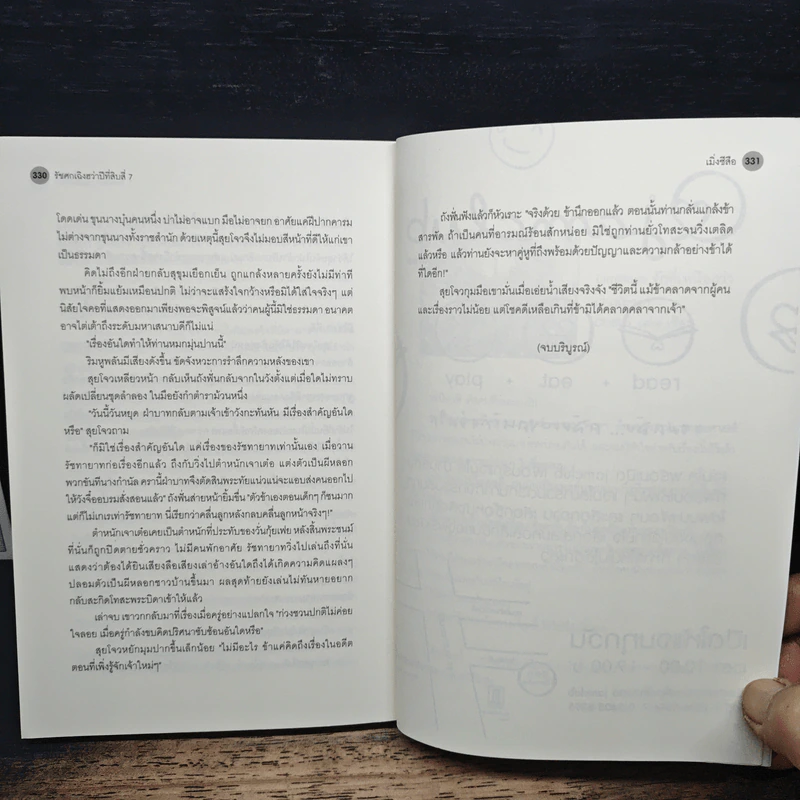 330 รัชศกเฉิงฮว่าปีที่สิบสี่ 7
โดดเด่น ขุนนางบุ๋นคนหนึ่ง บ่าไม่อาจแบก มือไม่อาจยก อาศัยแค่ฝีปากคารม
ไม่ต่างจากขุนนางทั้งราชสำนัก ด้วยเหตุนี้สุยโจวจึงไม่มอบสีหน้าที่ดีให้แก่เขา
เป็นธรรมดา
คิดไม่ถึงอีกฝ่ายกลับสุขุมเยือกเย็น ถูกแกล้งหลายครั้งยังไม่มีท่าที
พบหน้าก็ยิ้มแย้มเหมือนปกติ ไม่ว่าจะแสร้งใจกว้างหรือมิได้ใส่ใจจริงๆ แต่
นิสัยใจคอที่แสดงออกมาเพียงพอจะพิสูจน์แล้วว่าคนผู้นี้มิใช่ธรรมดา อนาคต
อาจไต่เต้าถึงระดับมหาเสนาบดีก็ไม่แน่
"เรื่องอันใดทำให้ท่านหมกมุ่นปานนี้"
ริมหูพลันมีเสียงดังขึ้น ขัดจังหวะการรำลึกความหลังของเขา
สุยโจวเหลียวหน้า กลับเห็นถังฟั่นกลับจากในวังตั้งแต่เมื่อใดไม่ทราบ
ผลัดเปลี่ยนชุดลำลอง ในมือยังกำตำราม้วนหนึ่ง
"วันนี้วันหยุด ฝ่าบาทกลับตามเจ้าเข้าวังกะทันหัน มีเรื่องสำคัญอันใด
หรือ" สุยโจวถาม
"ก็มิใช่เรื่องสำคัญอันใด แค่เรื่องของรัชทายาทเท่านั้นเอง เมื่อวาน
รัชทายาทก่อเรื่องอีกแล้ว ถึงกับวิ่งไปตำหนักเจาเต๋อ แต่งตัวเป็นผีหลอก
พวกขันทีนางกำนัล ครานี้ฝ่าบาทจึงตัดสินพระทัยแน่วแน่จะแอบส่งคนออกไป
ให้วังจื๋ออบรมสั่งสอนแล้ว" ถังฟั่นส่ายหน้ายิ้มขื่น "ตัวข้าเองตอนเด็กๆ ก็ซนมาก
แต่ก็ไม่เกเรเท่ารัชทายาท นี่เรียกว่าคลื่นลูกหลังกลบคลื่นลูกหน้าจริงๆ!"
ตำหนักเจาเต๋อเคยเป็นตำหนักที่ประทับของวันกุ้ยเฟย หลังสิ้นพระชนม์
ที่นั่นก็ถูกปิดตายชั่วคราว ไม่มีคนพักอาศัย รัชทายาทวิ่งไปเล่นถึงที่นั่น
แสดงว่าต้องได้ยินเสียงลือเสียงเล่าอ้างอันใดถึงได้เกิดความคิดแผลงๆ
ปลอมตัวเป็นผีหลอกชาวบ้านขึ้นมา ผลสุดท้ายยังเล่นไม่ทันหายอยาก
กลับสะกิดโทสะพระบิดาเข้าให้แล้ว
เล่าจบ เขาวกกลับมาที่เรื่องเมื่อครู่อย่างแปลกใจ "ก่วงชวนปกติไม่ค่อย
ใจลอย เมื่อครู่กำลังขบคิดปริศนาซับซ้อนอันใดหรือ"
สุยโจวหยักมุมปากขึ้นเล็กน้อย "ไม่มีอะไร ข้าแค่คิดถึงเรื่องในอดีต
ตอนที่เพิ่งรู้จักเจ้าใหม่ๆ"
เมิ่งซีสือ 331
ถังฟั่นฟังแล้วก็หัวเราะ "จริงด้วย ข้านึกออกแล้ว ตอนนั้นท่านกลั่นแกล้งข้า
สารพัด ถ้าเป็นคนที่อารมณ์ร้อนสักหน่อย มิใช่ถูกท่านยั่วโทสะจนวิ่งเตลิด
แล้วหรือ แล้วท่านยังจะหาคู่หูที่ถึงพร้อมด้วยปัญญาและความกล้าอย่างข้าได้
ที่ใดอีก!"
สุยโจวกุมมือเขามั่นเมื่อเอ่ยน้ำเสียงจริงจัง "ชีวิตนี้ แม้ข้าคลาดจากผู้คน
และเรื่องราวไม่น้อย แต่โชคดีเหลือเกินที่ข้ามิได้คลาดคลาจากเจ้า"
(จบบริบูรณ์)